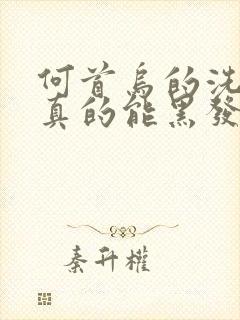 何首乌的洗
真的能黑發
秦升權